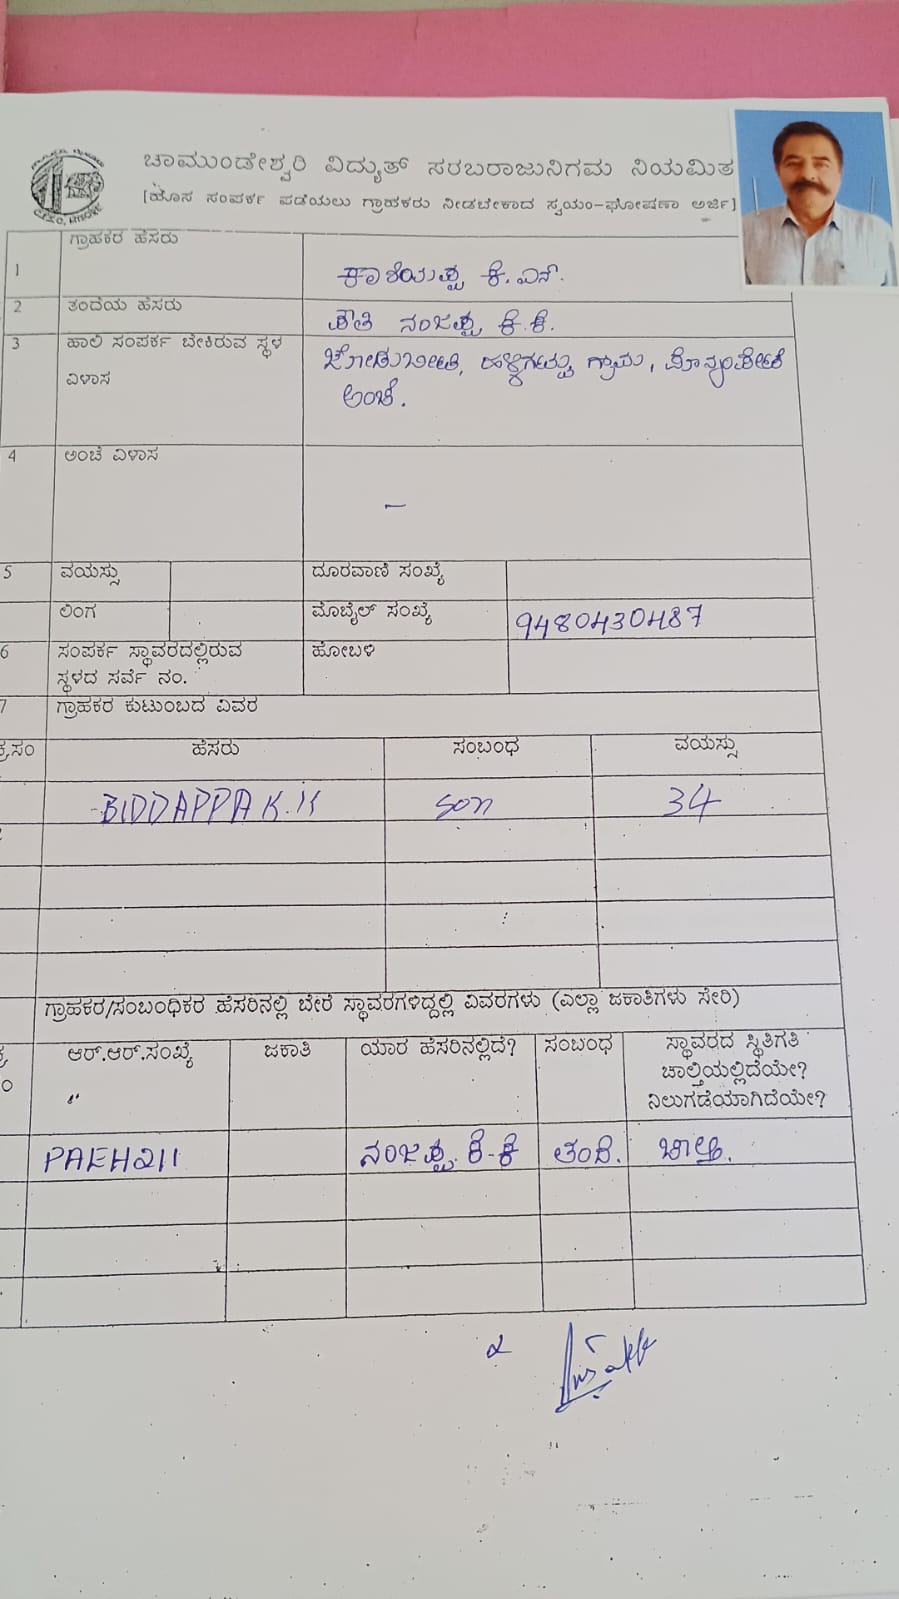 ಚಾಮುಂಡೇಶ್ವರಿ ವಿದ್ಯುತ್ ಸರಬರಾಜುನಿಗಮ ನಿಯಮಿತ
[ಹೊಸ ಸಂಪರ್ಕ ಪಡೆಯಲು ಗ್ರಾಹಕರು ನೀಡಬೇಕಾದ ಸ್ವಯಂ-ಘೋಷಣಾ ಅರ್ಜಿ]
1 ಗ್ರಾಹಕರ ಹೆಸರು ಕೆ.ಎನ್.
2 ತಂದೆಯ ಹೆಸರು ನಂಜಪ್ಪ ಕೆ.ಕೆ.
3 ಹಾಲಿ ಸಂಪರ್ಕ ಬೇಕಿರುವ ಸ್ಥಳ ಗ್ರಾಮ,
ವಿಳಾಸ ಅಂಚೆ.
4 ಅಂಚೆ ವಿಳಾಸ –
5 ವಯಸ್ಸು ದೂರವಾಣಿ ಸಂಖ್ಯೆ
ಲಿಂಗ ಮೊಬೈಲ್ ಸಂಖ್ಯೆ 9480430487
6 ಸಂಪರ್ಕ ಸ್ಥಾವರದಲ್ಲಿರುವ ಹೋಬಳಿ
ಸ್ಥಳದ ಸರ್ವೆ ನಂ.
7 ಗ್ರಾಹಕರ ಕುಟುಂಬದ ವಿವರ
ಕ್ರ.ಸಂ ಹೆಸರು ಸಂಬಂಧ ವಯಸ್ಸು
BIDDAPPA K.K son 34
ಗ್ರಾಹಕರ/ಸಂಬಂಧಿಕರ ಹೆಸರಿನಲ್ಲಿ ಬೇರೆ ಸ್ಥಾವರಗಳಿದ್ದಲ್ಲಿ ವಿವರಗಳು (ಎಲ್ಲಾ ಜಕಾತಿಗಳು ಸೇರಿ)
ಆರ್.ಆರ್.ಸಂಖ್ಯೆ ಜಕಾತಿ ಯಾರ ಹೆಸರಿನಲ್ಲಿದೆ? ಸಂಬಂಧ ಸ್ಥಾವರದ ಸ್ಥಿತಿಗತಿ
ಚಾಲ್ತಿಯಲ್ಲಿದೆಯೇ?
ನಿಲುಗಡೆಯಾಗಿದೆಯೇ?
PAEH211 ನಂಜಪ್ಪ. ಕೆ-ಕೆ ತಂದೆ. ಚಾಲ್ತಿ.